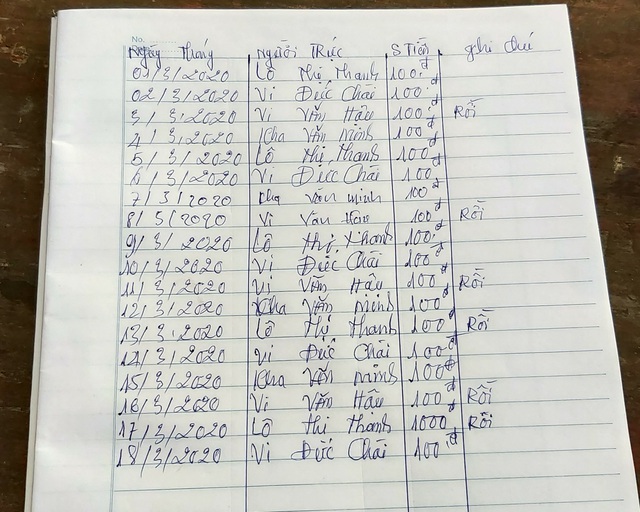 No.
Ngày tháng Người trực S.Tiền ghi chú
01/3/2020 Lô Thị Thanh 100đ
02/3/2020 Vi Đức Chải 100đ
3/3/2020 Vi Văn Hậu 100đ Rồi
4/3/2020 Kha Văn Minh 100đ
5/3/2020 Lô Thị Thanh 100đ
6/3/2020 Vi Đức Chải 100đ
7/3/2020 Kha Văn Minh 100đ
8/5/2020 Vi Văn Hậu 100đ Rồi
9/3/2020 Lô Thị Thanh 100đ
10/3/2020 Vi Đức Chải 100đ
11/3/2020 Vi Văn Hậu 100đ Rồi
12/3/2020 Kha Văn Minh 100đ
13/3/2020 Lô Thị Thanh 100đ Rồi
14/3/2020 Vi Đức Chải 100đ
15/3/2020 Kha Văn Minh 100đ
16/3/2020 Vi Văn Hậu 100đ Rồi
17/3/2020 Lô Thị Thanh 1000đ Rồi
18/3/2020 Vi Đức Chải 100đ